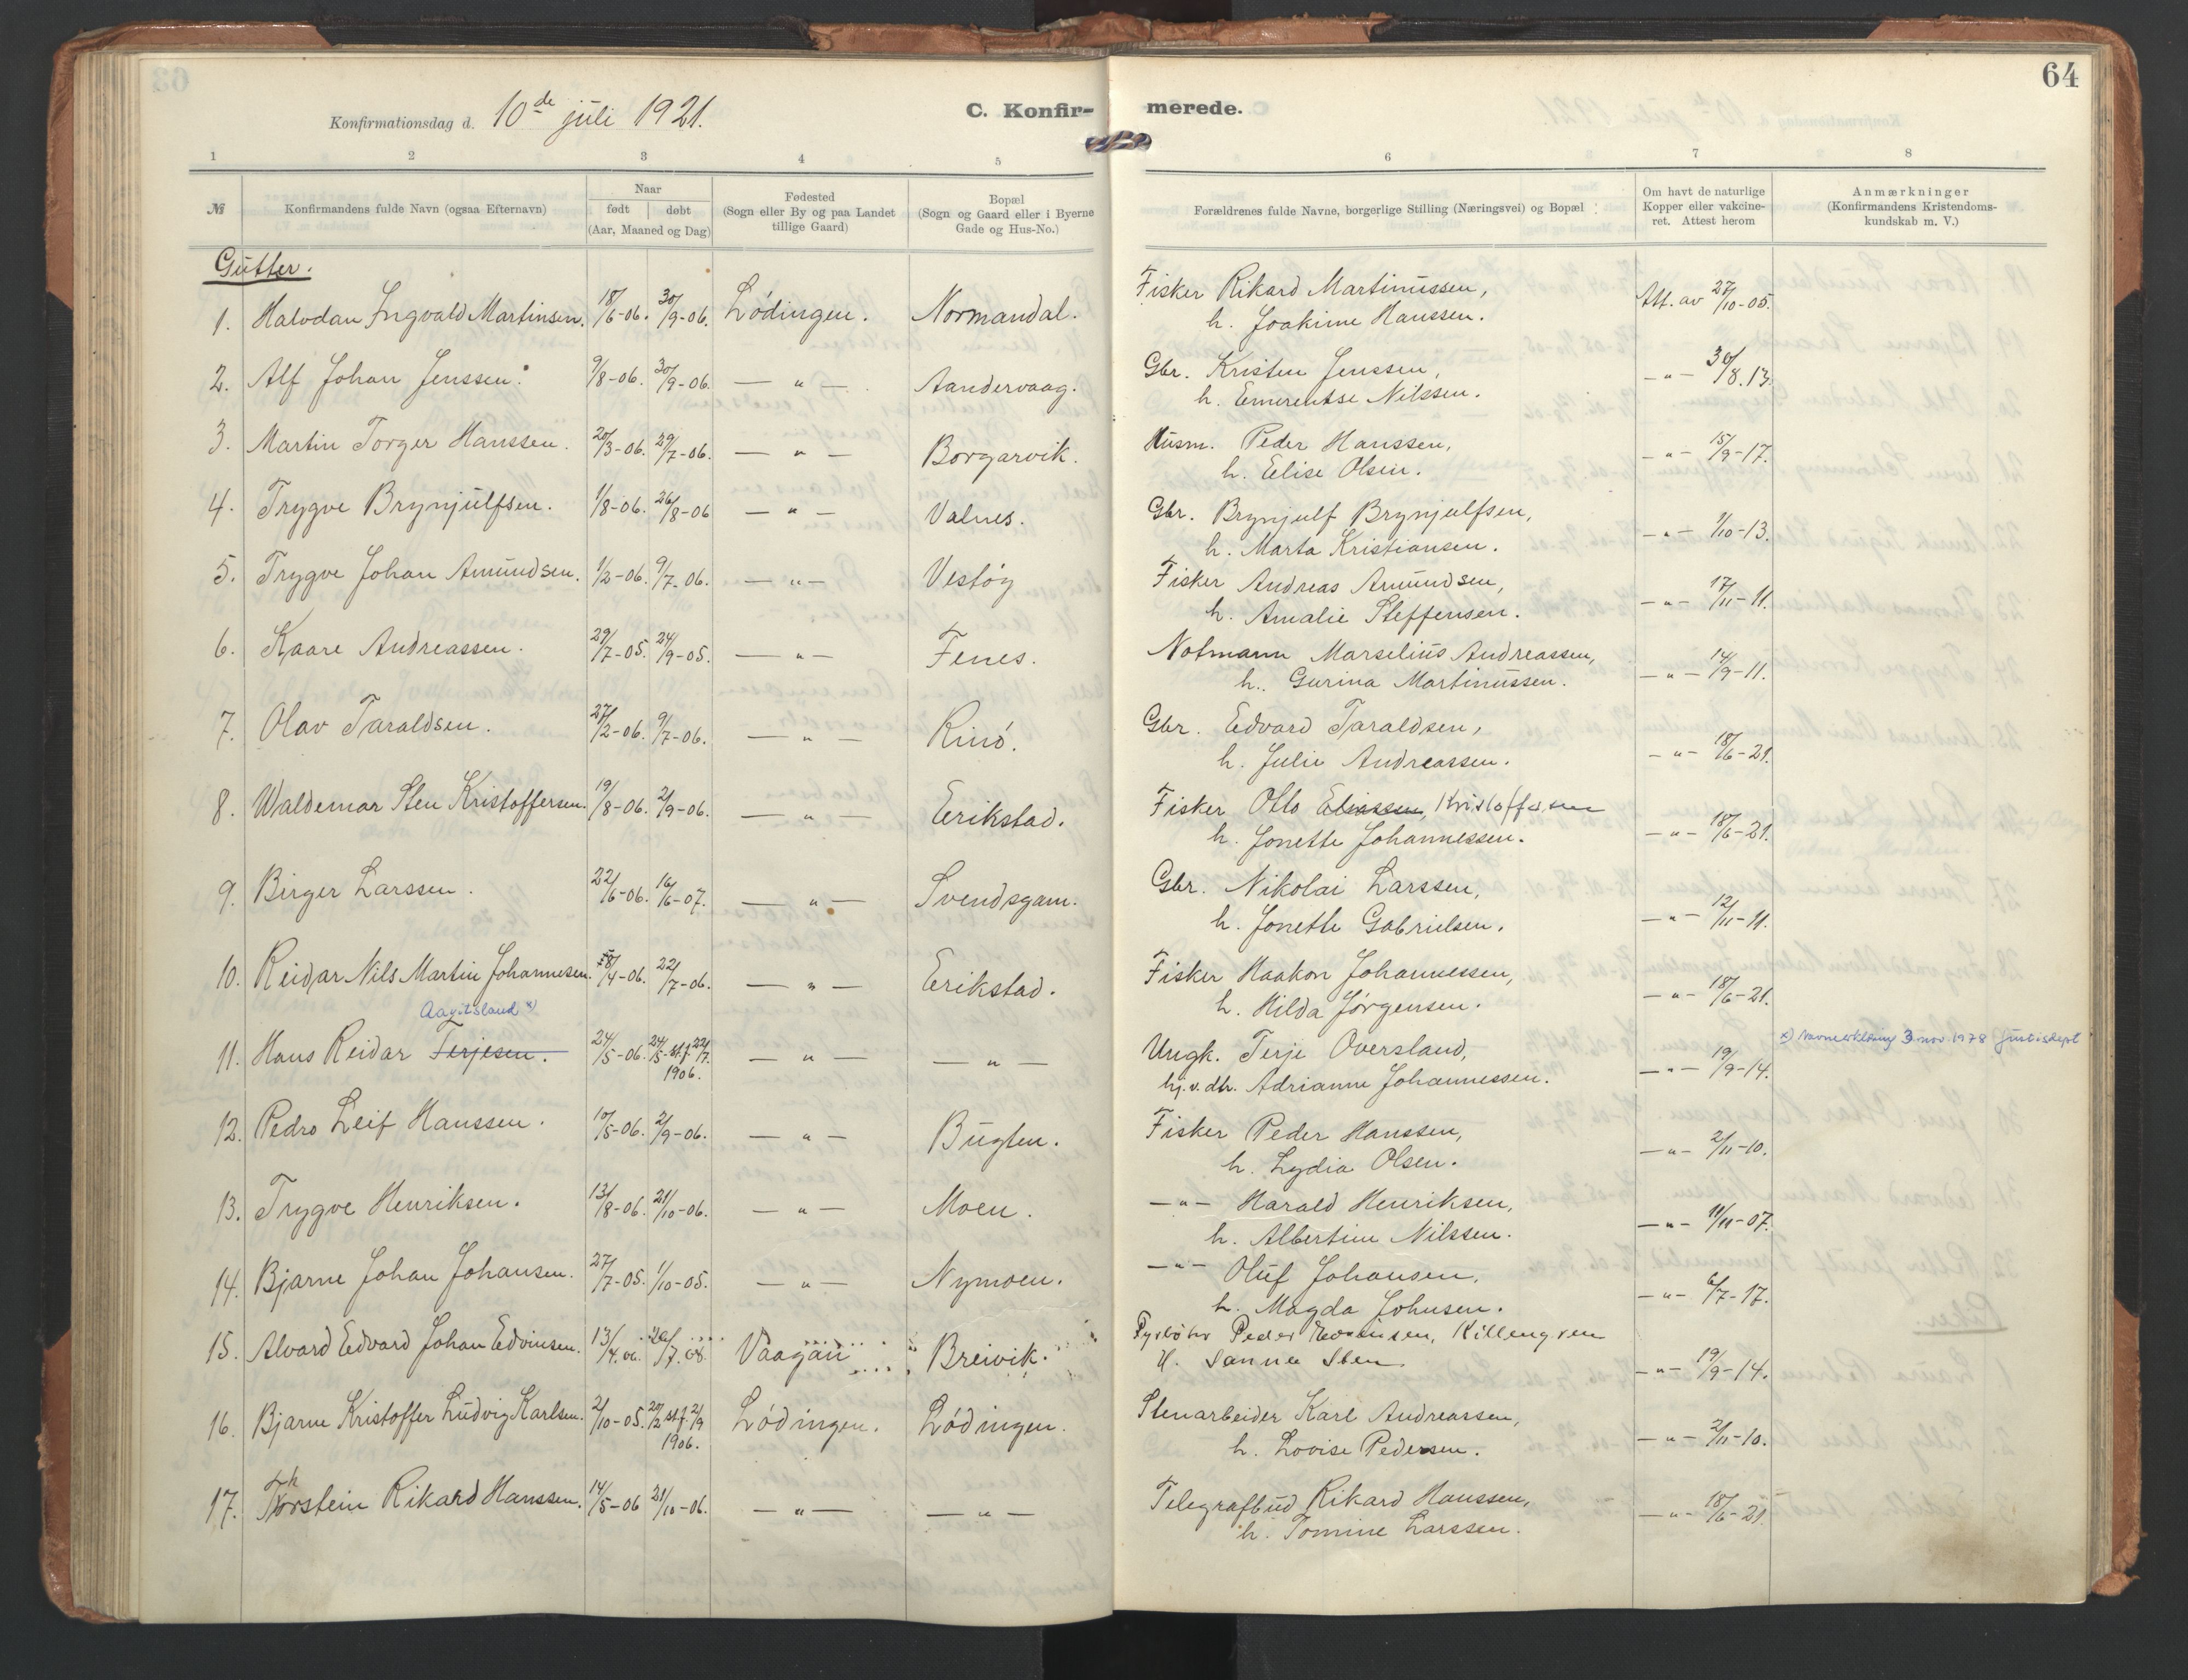 64
Konfirmationsdag d. 10de juli 1921.
C. Konfir-
merede.
1 2 3 4 5 6 7 8
№
Konfirmandens fulde Navn (ogsaa Efternavn)
Naar
født døbt
(Aar, Maaned og Dag)
Fødested
(Sogn eller By og paa Landet
tillige Gaard)
Bopæl
(Sogn og Gaard eller i Byerne
Gade og Hus-No.)
Forældrenes fulde Navne, borgerlige Stilling (Næringsvei) og Bopæl
Om havt de naturlige
Kopper eller vakcine-
ret. Attest herom
Anmærkninger
(Konfirmandens Kristendoms-
kundskab m. V.)
Gutter.
1. Halvdan Ingvald Martinsen. 18/6-06. 30/9-06. Lødingen. Normandal. Fisker Rikard Martinussen, Att. av 27/10-05.
h. Joakime Hanssen.
2. Alf Johan Jenssen. 9/8-06. 30/9-06. — " — Aandervaag. Gbr. Kristen Jenssen, — " — 30/8.13.
h. Emerentse Nilssen.
3. Martin Torger Hanssen. 20/3-06. 29/7-06. — " — Borgarvik. Husm. Peder Hanssen, — " — 15/9-17.
h. Elise Olsen.
4. Trygve Brynjulfsen. 1/8-06. 26/8-06 — " — Valnes. Gbr. Brynjulf Brynjulfsen, — " — 1/10-13.
h. Marta Kristiansen.
5. Trygve Johan Amundsen. 1/2-06. 9/7-06. — " — Vestøy Fisker Andreas Amundsen, — " — 17/11-11.
h. Amalie Steffensen.
6. Kaare Andreassen. 29/7-05. 24/9-05. — " — Fenes. Notmann Marselius Andreassen, — " — 14/9-11.
h. Gurina Martinussen.
7. Olav Taraldsen. 27/2-06. 9/7-06. — " — Rinø. Gbr. Edvard Taraldsen, — " — 18/6-21.
h. Julie Andreassen.
8. Waldemar Sten Kristoffersen. 19/8-06. 2/9-06. — " — Erikstad. Fisker Otto Eliassen, Kristoffersen — " — 18/6-21.
h. Jonette Johannessen.
9. Birger Larssen. 22/6-06. 16/6-07. — " — Svendsgam. Gbr. Nikolai Larssen, — " — 12/11-11.
h. Jonette Gabrielsen.
10. Reidar Nils Martin Johannesen. 8/4-06. 22/7-06. — " — Erikstad. Fisker Haakon Johannessen, — " — 18/6-21.
h. Hilda Jørgensen.
11. Hans Reidar Terjesen. 24/5-06. 24/5-st.f. 22/7. 1906. — " — — " — Ungk. Terje Oversland, — " — 19/9-14. x) Navneerklæring 3 nov. 1978 Justisdept
hj.v.dtr. Adrianne Johannessen.
12. Pedro Leif Hanssen. 10/5-06. 2/9-06. — " — Bugten. Fisker Peder Hanssen, — " — 2/11-10.
h. Lydia Olsen.
13. Trygve Henriksen. 13/8-06. 21/10-06. — " — Moen. — " — Harald Henriksen, — " — 11/11-07.
h. Albertine Nilssen.
14. Bjarne Johan Johansen. 27/7-05. 1/10-05. — " — Nymoen. — " — Oluf Johansen, — " — 6/7-17.
h. Magda Johnsen.
15. Alvard Edvard Johan Edvinsen. Vaagan Breivik. Peder Edvinsen, — " — 19/9-14.
H. Sanna Sten
16. Bjarne Kristoffer Ludvig Karlsen. 2/10-05. st.f. 2/9 1906. Lødingen. Lødingen. Stenarbeider Karl Andreassen, — " — 2/11-10.
h. Lovise Pedersen.
17. Thorstein Rikard Hanssen. 14/5-06 21/10-06. — " — — " — Telegrafbud Rikard Hanssen, — " — 18/6-21.
h. Tomine Larssen.